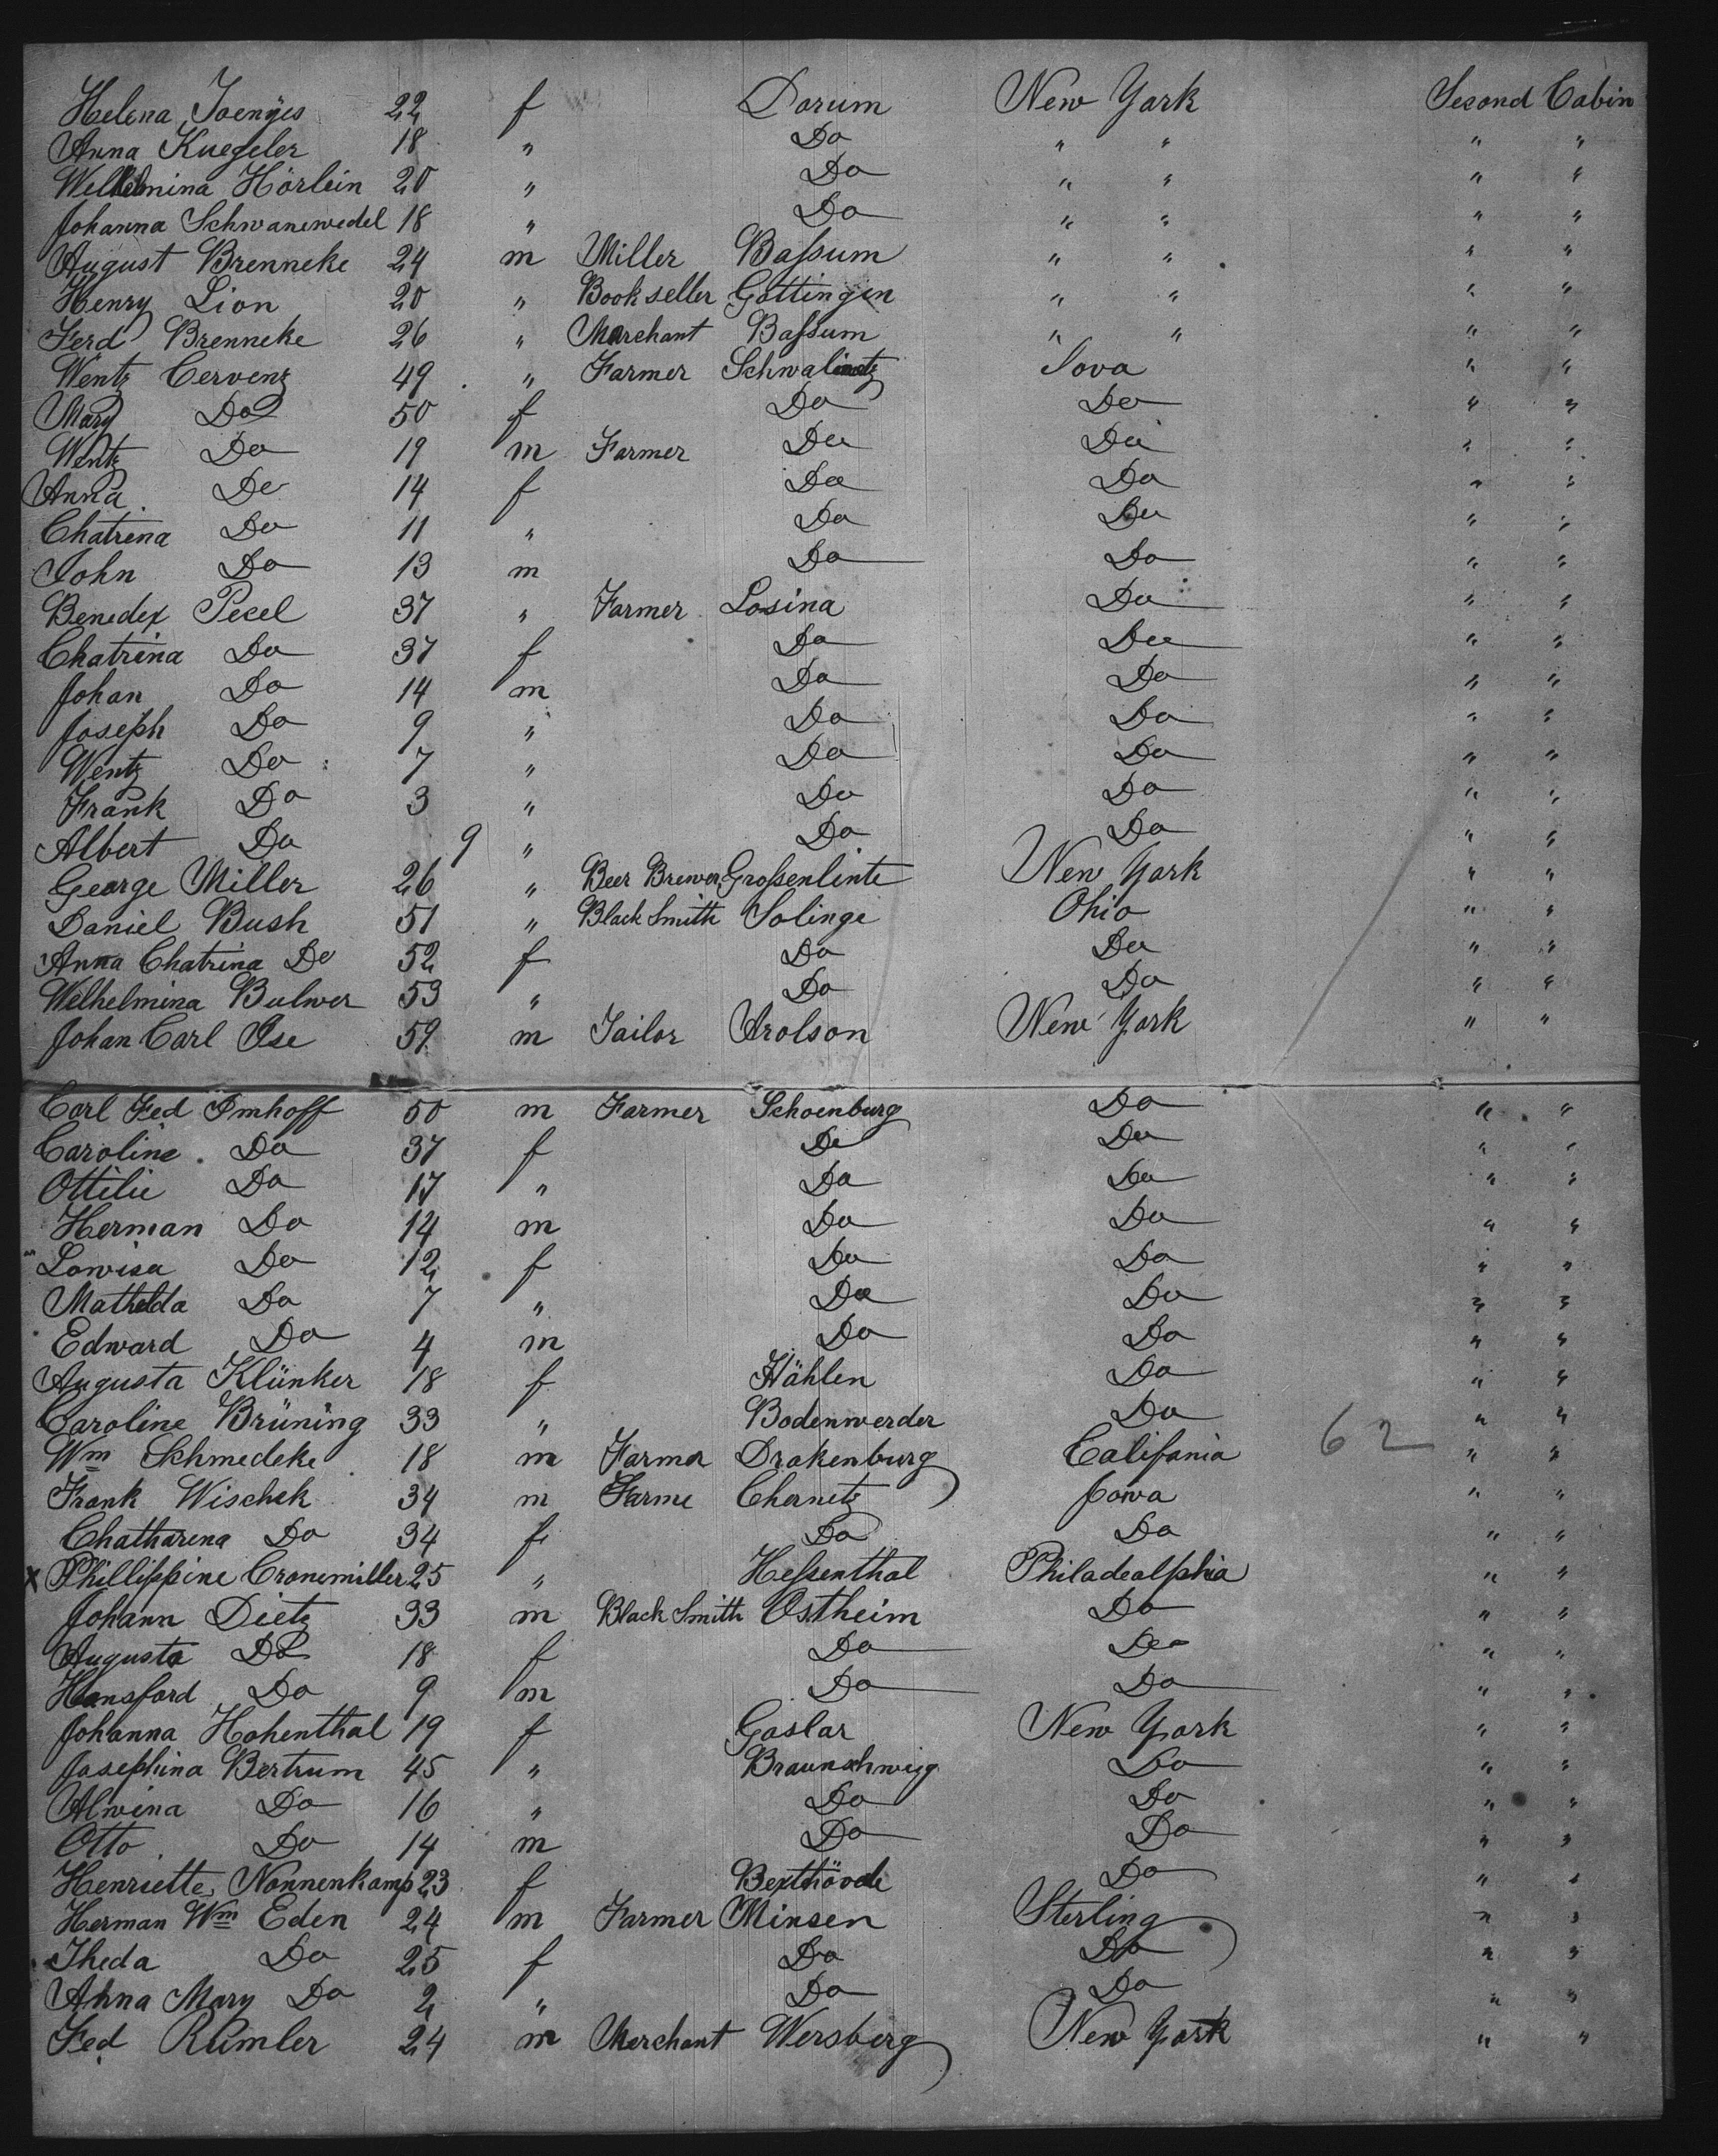 Helena Joenges 22 f Dorum New York Second Cabin
Anna Kuegeler 18 " Do " " " "
Welhelmina Hörlein 20 " Do " " " "
Johanna Schwanewedel 18 " Do " " " "
August Brenneke 24 m Miller Baſsum " " " "
Henry Lion 20 " Bookseller Göttingen " " " "
Ferd Brenneke 26 " Marchant Baſsum " " " "
Wentz Cervenz 49 " Farmer Iova " "
Mary Do 50 f Do Do " "
Wentz Do 19 m Farmer Do Do " "
Anna Do 14 f Do Do " "
Chatrina Do 11 " Do Do " "
John Do 13 m Do Do " "
Benedex Pecel 37 " Farmer Losina Do " "
Chatrina Do 37 f Do Do " "
Johan Do 14 m Do Do " "
Joseph Do 9 " Do Do " "
Wentz Do 7 " Do Do " "
Frank Do 3 " Do Do " "
Albert Do 9 " Do Do " "
George Miller 26 " Beer Brewer Groſsenlinte New York " "
Daniel Bush 51 " Black Smith Solinge Ohio " "
Anna Chatrina Do 52 f Do Do " "
Welhelmina Bulwer 53 " Do Do " "
Johan Carl Ise 59 m Tailor Arolson New York " "
Carl Fed Imhoff 50 m Farmer Schoenburg Do " "
Caroline Do 37 f Do Do " "
Ottilie Do 17 " Do Do " "
Herman Do 14 m Do Do " "
Lowisa Do 12 f Do Do " "
Mathilda Do 7 " Do Do " "
Edward Do 4 m Do Do " "
Augusta Klünker 18 f Hählen Do " "
Caroline Brüning 33 " Bodenwerder Do " "
Wm Schmedeke 18 m Farmer Drakenburg Califania 62 " "
Frank Wischek 34 m Farme Chernitz Jowa " "
Chatharena Do 34 f Do Do " "
x Phillippine Cronemiller 25 " Heſsenthal Philadealphia " "
Johann Dietz 33 m Black Smith Ostheim Do " "
Augusta Do 18 f Do Do " "
Hansford Do 9 m Do Do " "
Johanna Hohenthal 19 f Goslar New York " "
Josephina Bertrum 45 " Braunshweig Do " "
Alwina Do 16 " Do Do " "
Otto Do 14 m Do Do " "
Henriette Nonnenkamp 23 f Bexthövde Do " "
Herman Wm Eden 24 m Farmer Minsen Sterling " "
Theda Do 25 f Do Do " "
Ahna Mary Do 2 " Do Do " "
Fed Rümler 24 m Merchant Wersberg New York " "